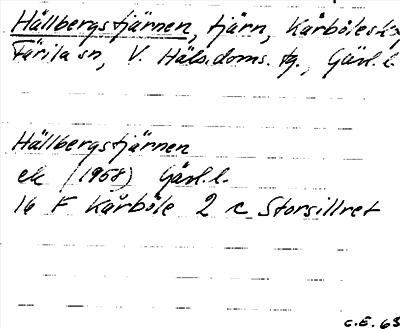 Hällbergstjärnen, tjärn, Kårböleskog
Färila sn, V. Häls. doms. tg., Gävl. l.
Hällbergstjärnen
ek (1958) Gävl. l.
16 F Kårböle 2 c Storsillret
C.E. 63